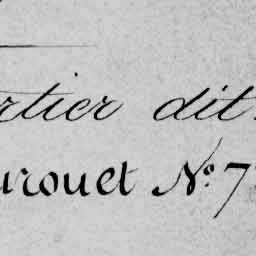 rtier dit
urouet N.º 7